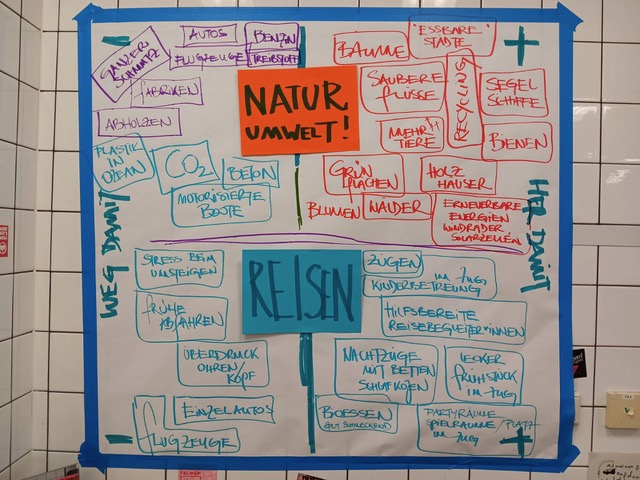 WEG DAMIT
GANZER
SCHMUTZ
AUTOS
BENZIN
FLUGZEUGE
TREIBSTOFF
FABRIKEN
ABHOLZEN
PLASTIK
IN
OZEAN
CO2
BETON
MOTORISIERTE
BOOTE
NATUR
UMWELT!
HER DAMIT
+
BÄUME
"ESSBARE"
STÄDTE
SAUBERE
FLÜSSE
SEGEL
SCHIFFE
MEHR
TIERE
BIENEN
GRÜN
FLÄCHEN
HOLZ
HÄUSER
BLUMEN
WÄLDER
ERNEUERBARE
ENERGIEN
WINDRÄDER
SOLARZELLEN
REISEN
STRESS BEIM
UMSTEIGEN
FRÜHE
ABFAHREN
ÜBERDRUCK
OHREN/
KOPF
EINZELAUTOS
FLUGZEUGE
ZÜGEN
IM ZUG
KINDERBETREUUNG
HILFSBEREITE
REISEBEGLEITER*INNEN
NACHTZÜGE
MIT BETTEN
SCHLAFKOJEN
LECKER
FRÜHSTÜCK
IM ZUG
BOESSEN
GUT SCHMECKEND
PARTYRÄUME
SPIELRÄUME/PLATZ
IM ZUG
+